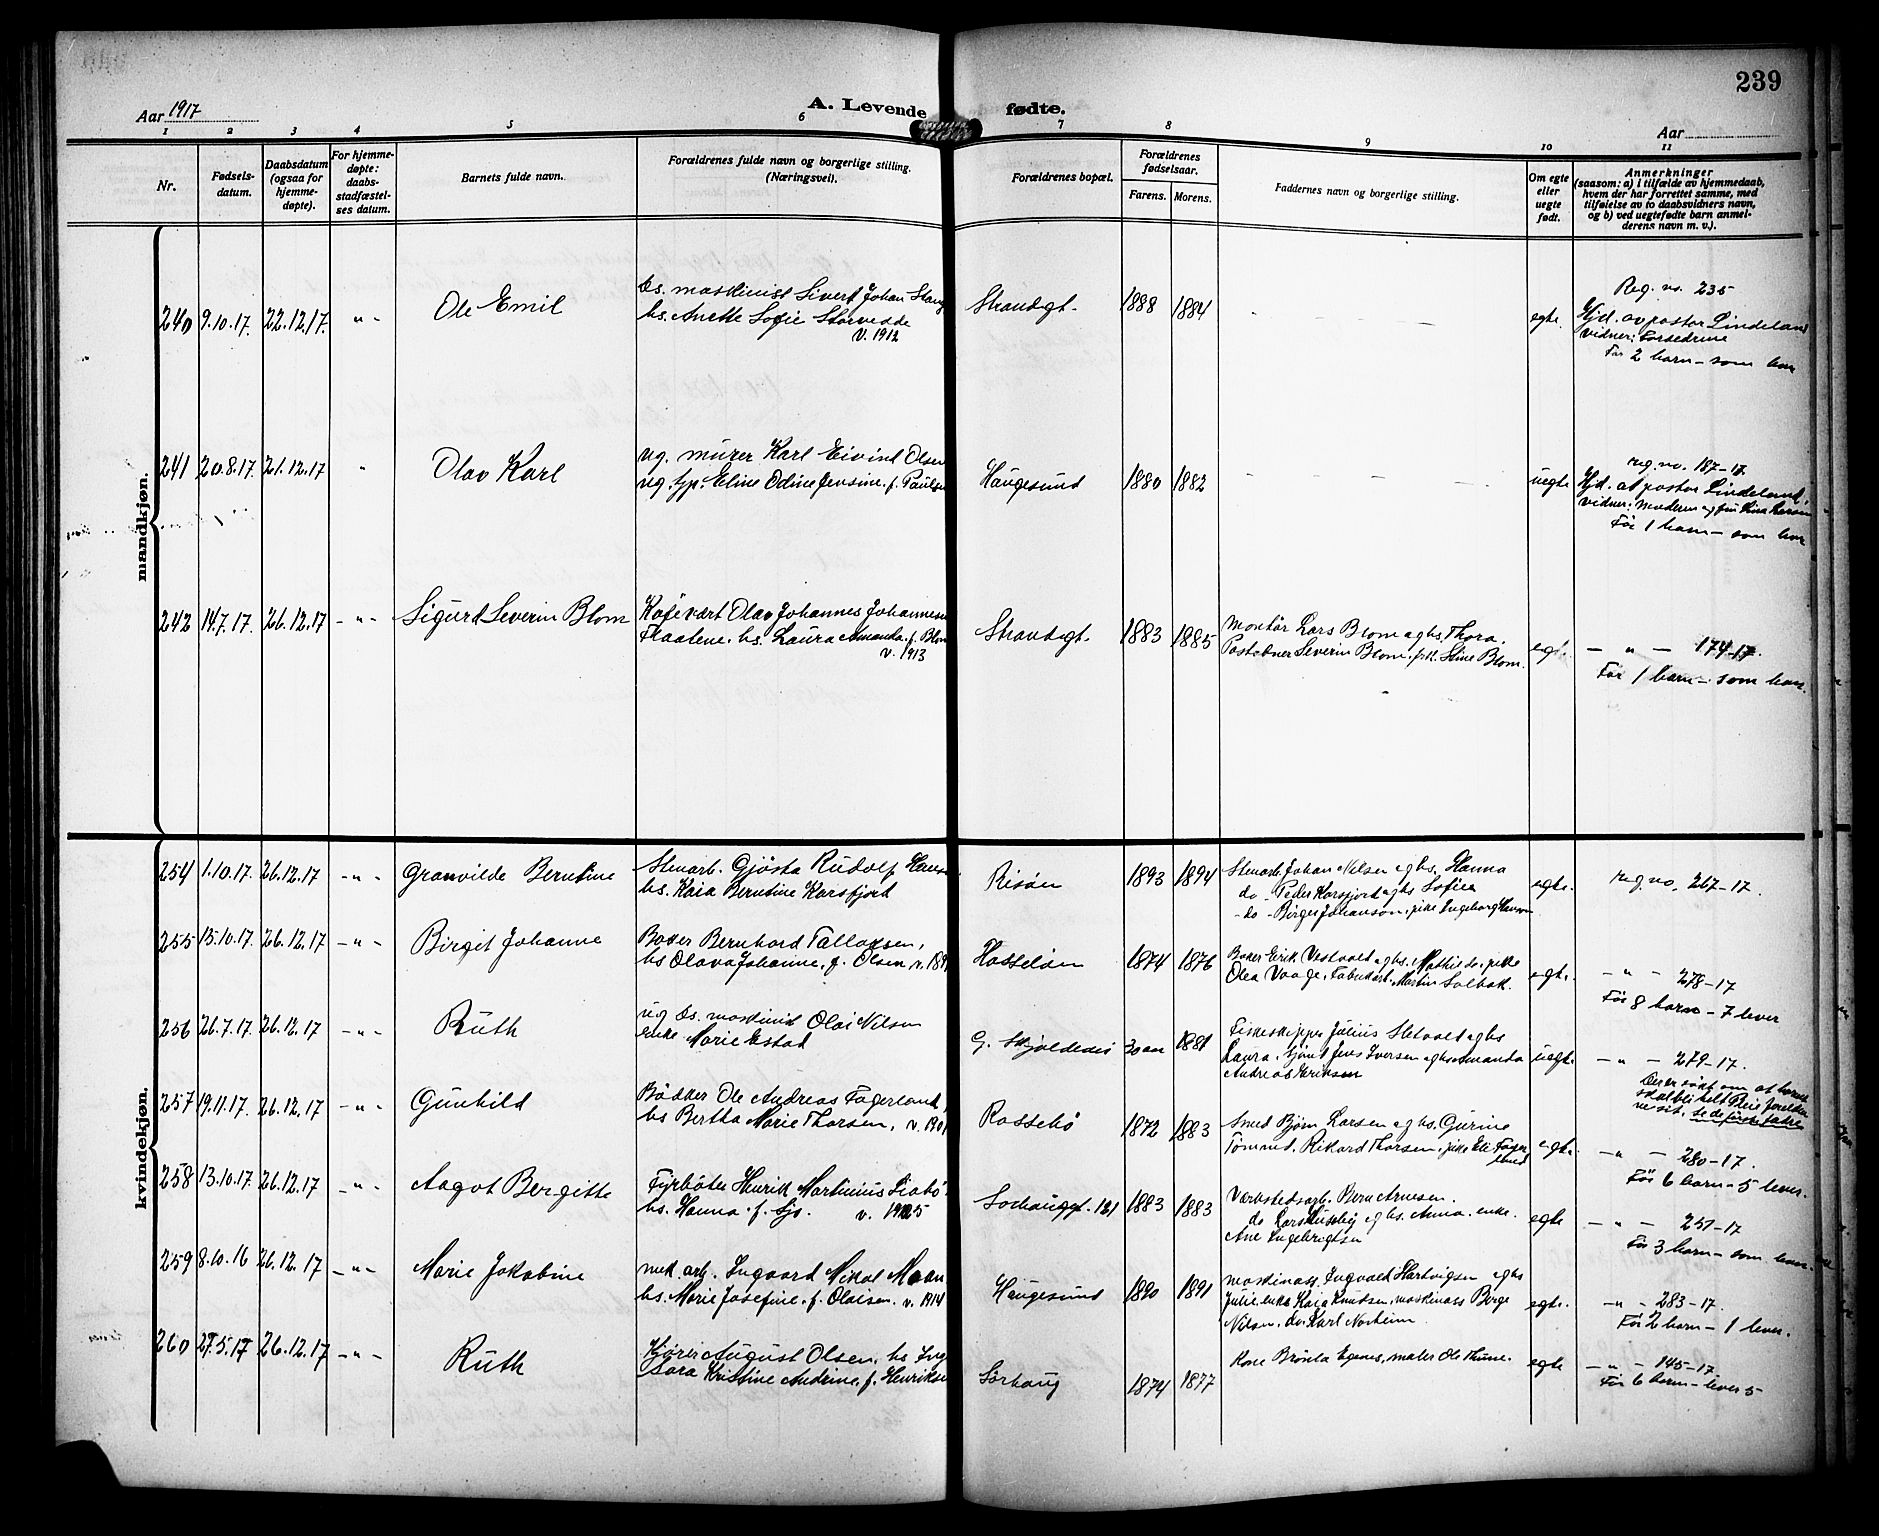 239
Aar 1917
A. Levende fødte.
Aar
1 2 3 4 5 6 7 8 9 10 11
Nr.
Fødsels-
datum.
Daabsdatum
(ogsaa for
hjemme-
døpte).
For hjemme-
døpte:
daabs-
stadfæstel-
ses datum.
Barnets fulde navn.
Forældrenes fulde navn og borgerlige stilling.
(Næringsvei.)
Forældrenes bopæl.
Forældrenes
fødselsaar.
Farens. Morens.
Faddernes navn og borgerlige stilling.
Om egte
eller
uegte
født.
Anmerkninger
(saasom: a) i tilfælde av hjemmedaab,
hvem der har forrettet samme, med
tilføielse av to daabsvidners navn,
og b) ved uegtefødte barn anmel-
derens navn m. v.).
mandkjøn.
240 9.10.17. 22.12.17. - " - Ole Emil
ds. maskinist Sivert Johan
hs. Anette Sofie Storvedde
v. 1912
Strandgt. 1888 1884 egte.
Reg. no. 235
Hjd. av pastor Lindeland
vidner:
Før 2 barn – som lever
241 20.8.17. 21.12.17 " Olav Karl
ug. murer Karl Eivind Olsen
ug. Eline Odine Jensine f. Paulsen
Haugesund 1880 1882 uegte
reg. no. 187-17
Hjd. af pastor Lindeland,
vidner: moderen og
Før 1 barn – som lever
242 14.7.17. 26.12.17 - " - Sigurd Severin Blom
Kafévert Olav Johannes Johannesen
Flaatene. hs. Laura Amanda f. Blom
v. 1913
Strandgt. 1883 1885
Montør Lars Blom og hs. Thora.
Severin Blom, pik. Stine Blom.
egte.
- " - 174-17.
Før 1 barn – som lever.
kvindekjøn.
254 1.10.17. 26.12.17 - " - Granvilde Berntine
Stenarb. Gjøsta Rudolf
hs. Kaia Berntine Karsfjort
Risøen 1893 1894
Stenarb. Johan Nilsen og hs. Hanna
do - Peder Karsfjort og hs Sofie
- do - Birger Johanson, pike Ingeborg
egte. reg. no. 267-17.
255 15.10.17. 26.12.17 - " - Birgit Johanne
Bøker Bernhard Tallaksen,
hs Olava Johanne, f. Olsen
Hasseløen 1874 1876
Erik og hs. Mathilde, pike
Olea Vaage, Martin Solbak.
egte. - " - 278-17
Før 8 barn – 7 lever
256 26.7.17. 26.12.17 - " - Ruth
ug ds. maskinist Olai Nilsen
enke Marie
G. 30 aar 1881
Fiskeskipper Julius og hs
Laura, Jens Iversen og hs Amanda
Andreas Eriksen
uegte - " - 279-17.
Der er søkt om at barnet
257 19.11.17. 26.12.17 - " - Gunhild
Bødker Ole Andreas Fagerland,
hs Bertha Marie Thorsen, v. 1901
Rossebø 1872 1883
Smed Bjørn Larsen og hs. Gurine
Tømmd. Rikard Thorsen, pike Eli Fager-
land
egte. - " - 280-17.
Før 6 barn – 5 lever.
258 13.10.17. 26.12.17 - " - Aagot Bergitte
Fyrbøter Henrik Martinius
hs. Hanna f. v. 1905
Sørhauggt. 121 1883 1883
Værkstedsarb. Bern Arnesen.
do Lars og hs. Anna. enke.
Ane Ingebrigtsen
egte - " - 251-17
Før 3 barn – som lever.
259 8.10.16 26.12.17 - " - Marie Jakobine
mek. arb. Ingvard Mikal
hs. Marie Josefine, f. Olaisen. v. 1914
Haugesund 1890 1891
Maskinass. Ingvald Hartvigsen og hs
Julie, enke Kaia Knudsen, maskinass Birge
Nilsen, do Karl Norheim
egte. - " - 283-17.
Før 2 barn – 1 lever.
260 27.5.17 26.12.17 - " - Ruth
Kjører August Olsen, hs
Kristine Andrine, f. Henriksen
Sørhaug 1874 1877
Kone Egenes, maler Ole Thune.
egte - " - 145-17.
Før 6 barn – lever 5